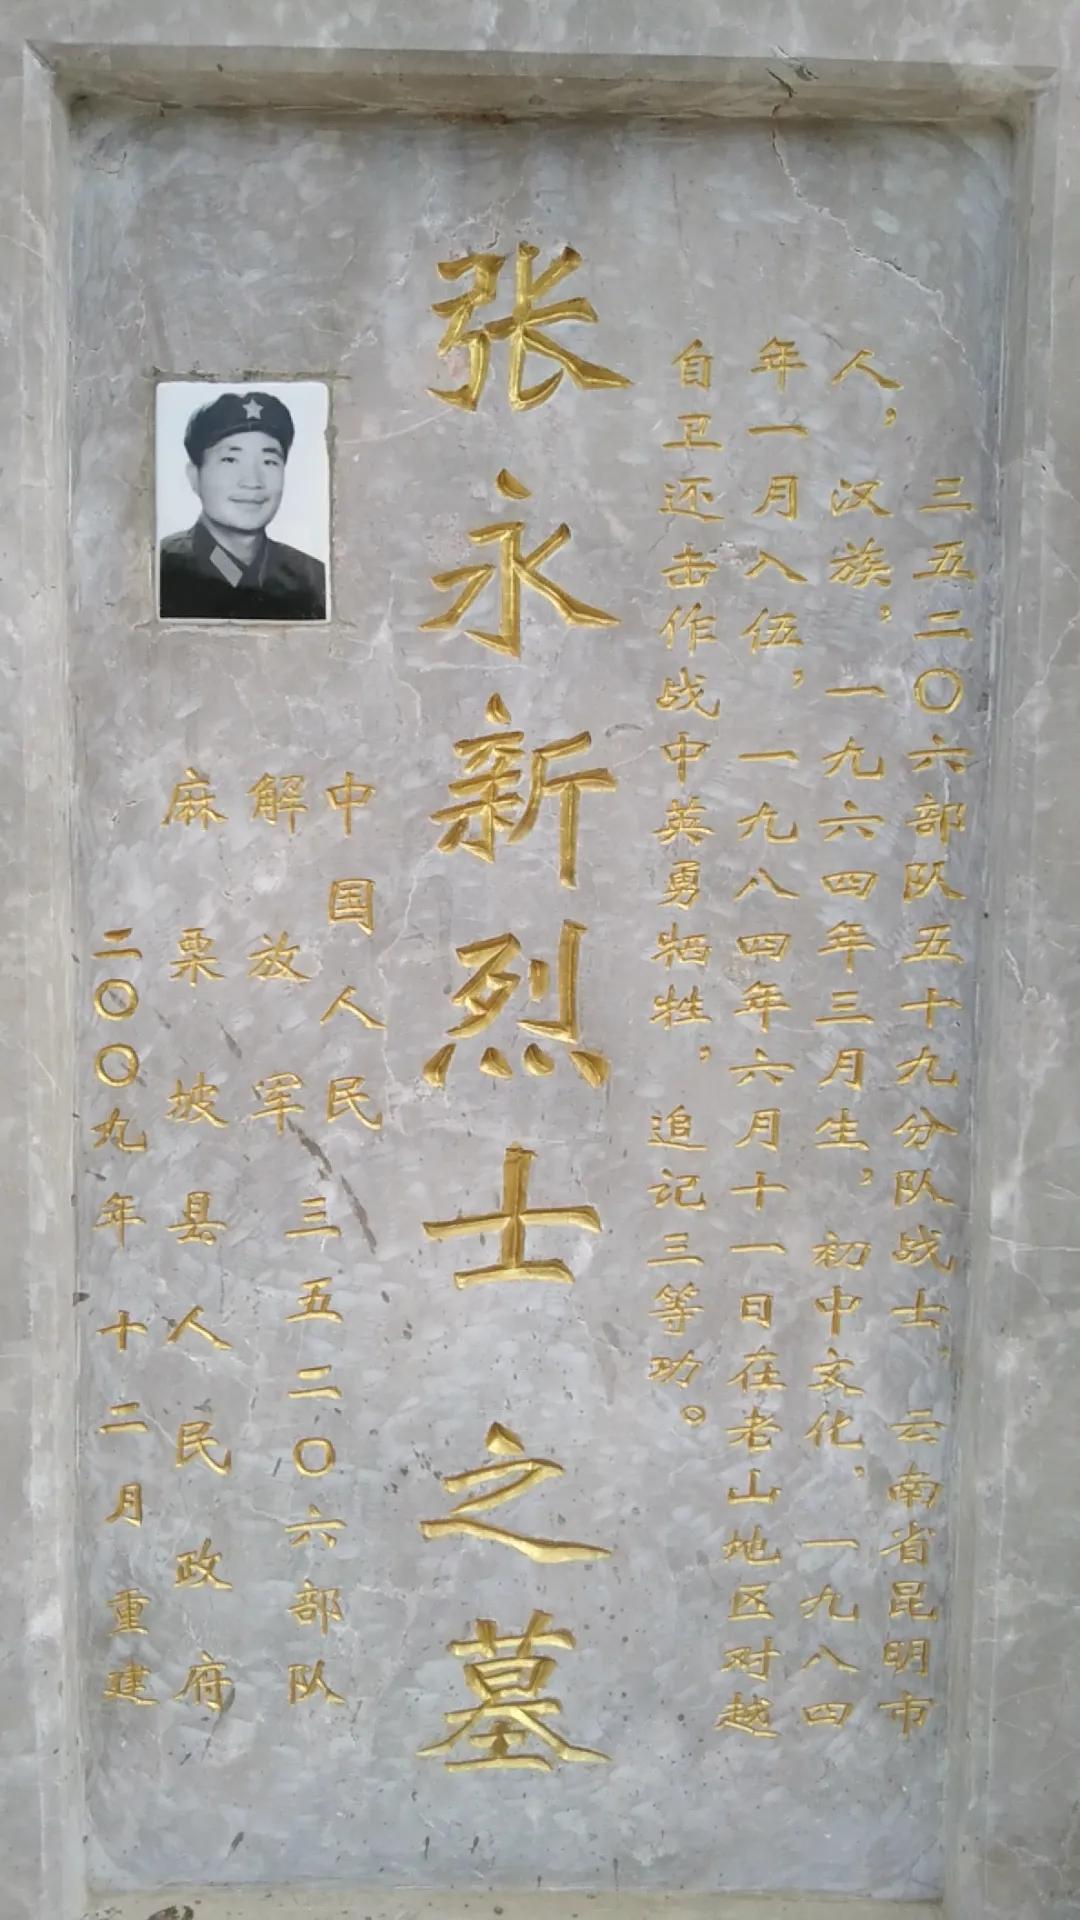 三五二〇六部队五十九分队战士，云南省昆明市
人，汉族，一九六四年三月生，初中文化，一九八四
年一月入伍，一九八四年六月十一日在老山地区对越
自卫还击作战中英勇牺牲，追记三等功。
张永新烈士之墓
中国人民
解放军三五二〇六部队
麻栗坡县人民政府
二〇〇九年十二月重建